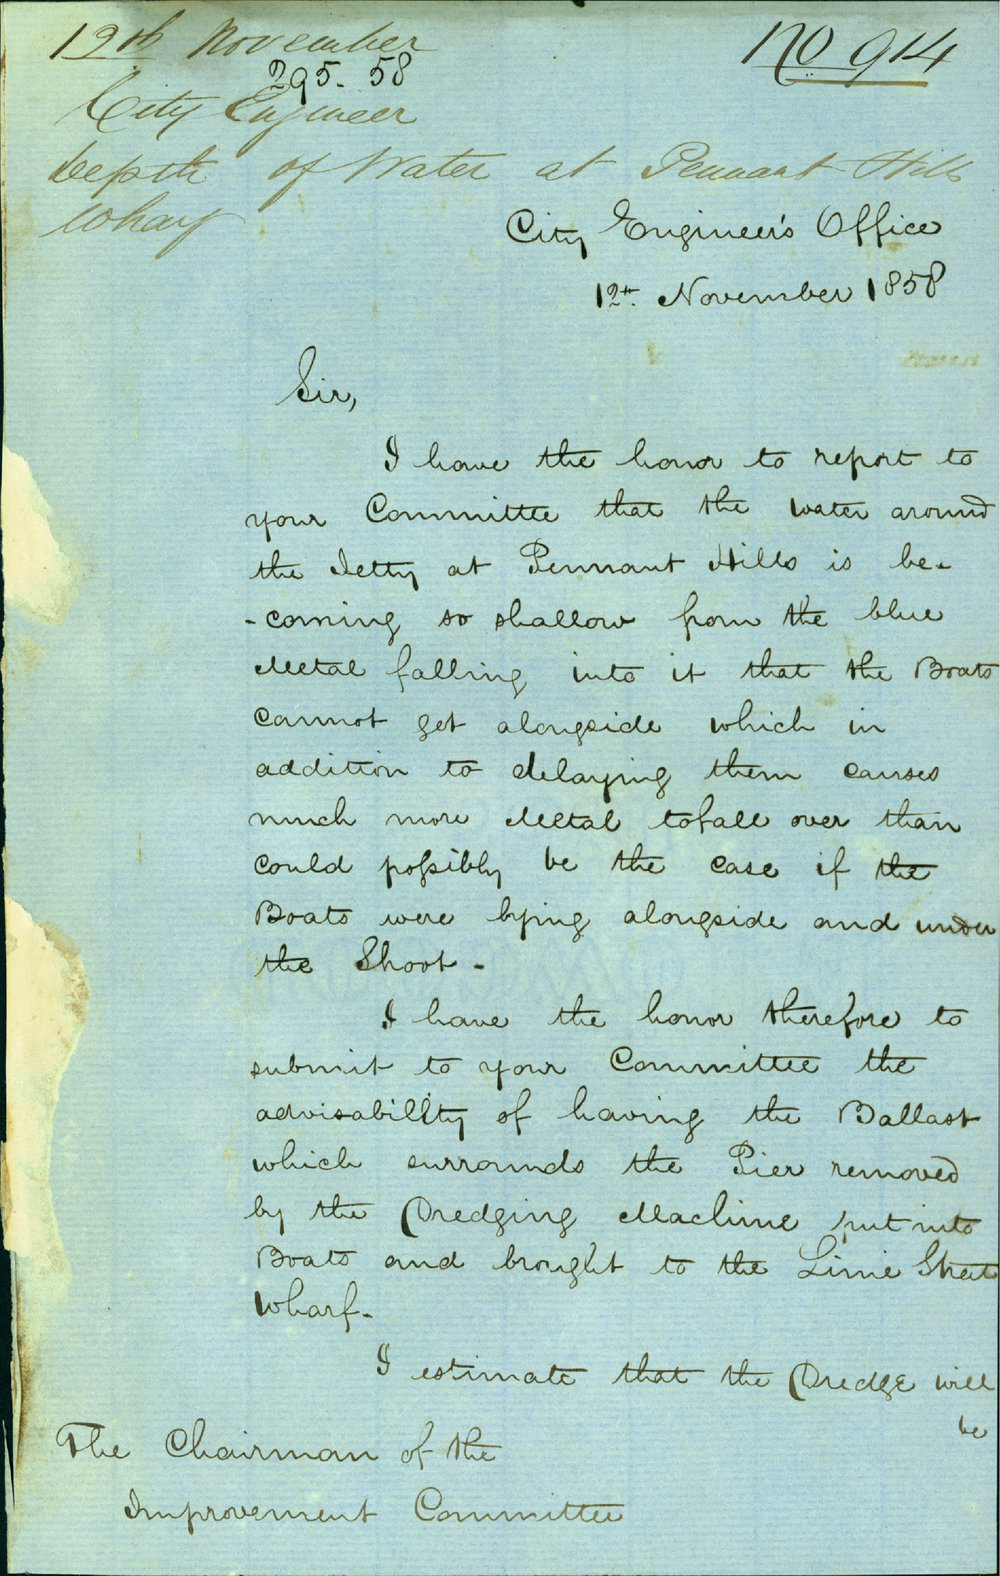 19th November
No 914
295. 58
City Engineer
Depth of Water at Pennant Hills
Wharf
City Engineer's Office
12th November 1858
Sir,
I have the honor to report to
your Committee that the water around
the Jetty at Pennant Hills is be-
-coming so shallow from the blue
Metal falling into it that the Boats
cannot get alongside which in
addition to delaying them causes
much more Metal to fall over than
could possibly be the case if the
Boats were lying alongside and under
the Shoot.
I have the honor therefore to
submit to your Committee the
advisability of having the Ballast
which surrounds the Pier removed
by the Dredging Machine put into
Boats and brought to the Lime Street
Wharf.
I estimate that the Dredge will
be
The Chairman of the
Improvement Committee